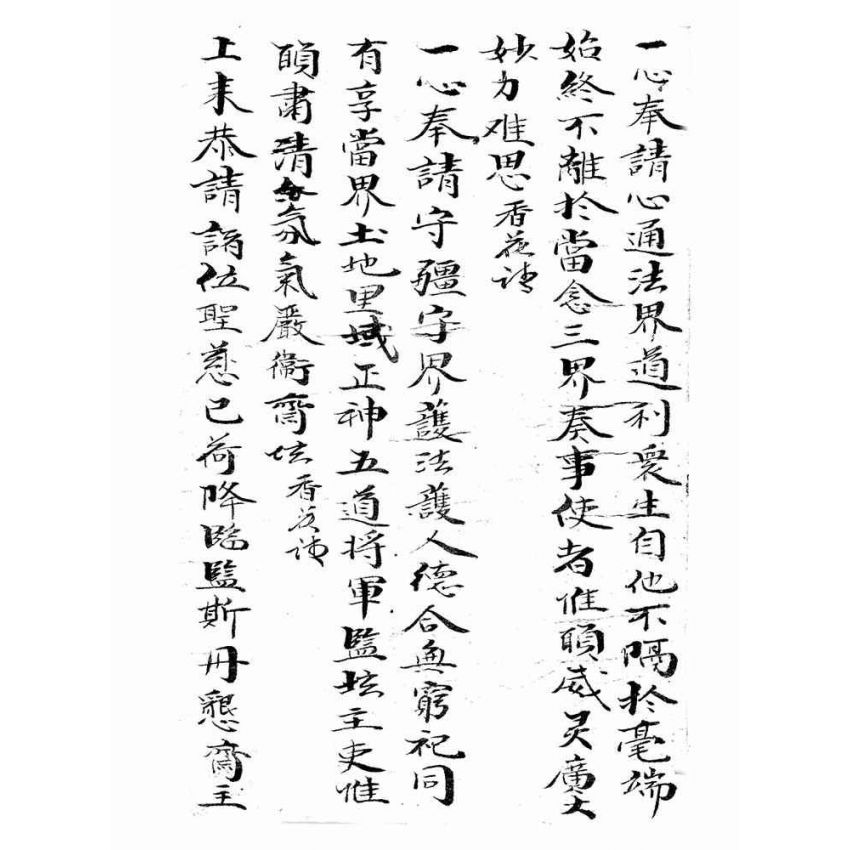 一心奉請心通法界道利衆生自他不隔於毫端
始終不離於當念三界奏事使者惟願威灵廣大
妙力难思香花请
一心奉請守疆守界護法護人德合無窮祀同
有享當界土地里域正神五道将軍監坛主吏惟
願肅清氛氣嚴衞齋坛香花请
上来恭請諸位聖慈已荷降臨監斯丹懇齋主